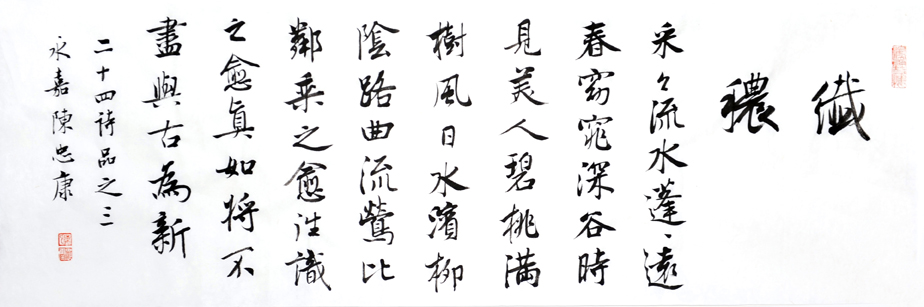 纖穠
采々流水蓬、遠
春窈窕深谷時
見美人碧桃滿
樹風日水濱柳
陰路曲流鶯比
鄰乘之愈往識
之愈真如將不
盡與古為新
二十四詩品之三
永嘉陳忠康